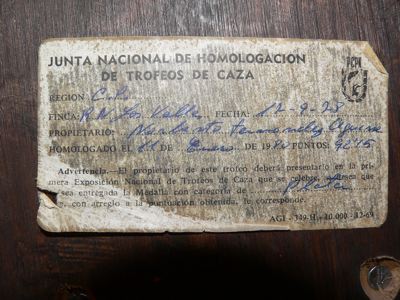 JUNTA NACIONAL DE HOMOLOGACION
DE TROFEOS DE CAZA
REGION C.C.
FINCA: R.N. Los Valles FECHA: 12-9-78
PROPIETARIO: Norberto Fernandez
HOMOLOGADO EL de Enero de 1980 PUNTOS: 92'15
Advertencia.- El propietario de este trofeo deberá presentarlo en la pri-
mera Exposición Nacional de Trofeos de Caza que se celebre, si desea que
sea entregada la Medalla con categoría de Plata
con arreglo a la puntuación obtenida, le corresponde.
AGI - 749.H.-10.000-12-69